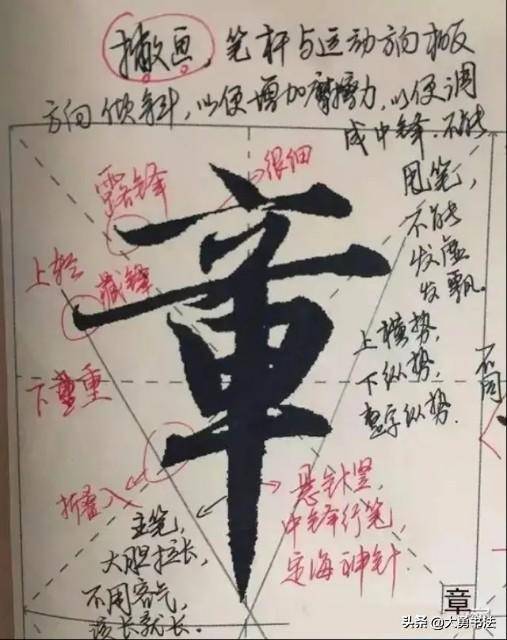 撇画，笔杆与运动方向相反
方向倾斜，以便增加摩擦力，以便调
成中锋.不能
甩笔，
不能
发虚
发飘。
很细
露锋
上轻
藏锋
下重
上横势，
下纵势，
整字纵势.
不同
折叠入
主笔，
大胆拉长，
不用客气，
该长就长.
悬针竖，
中锋行笔，
定海神针.
章
章
头条 @大勇书法